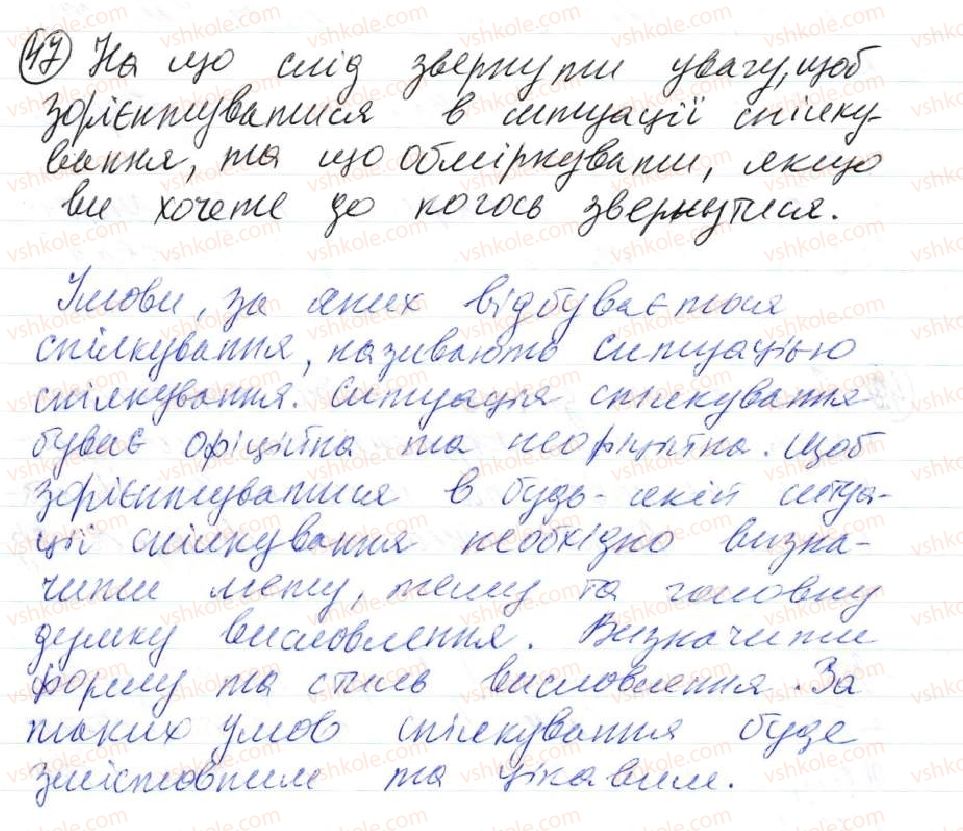 47 На що слід звернути увагу, щоб
зорієнтуватися в ситуації спілку-
вання, та що обміркувати, якщо
ви хочете до когось звернутися.
Умови, за яких відбувається
спілкування, називають ситуацією
спілкування. Ситуація спілкування
буває офіційна та неофіційна. Щоб
зорієнтуватися в будь-якій ситуа-
ції спілкування необхідно визна-
чити мету, тему та головну
думку висловлення. Визначити
форму та стиль висловлення. За
таких умов спілкування буде
змістовним та цікавим.